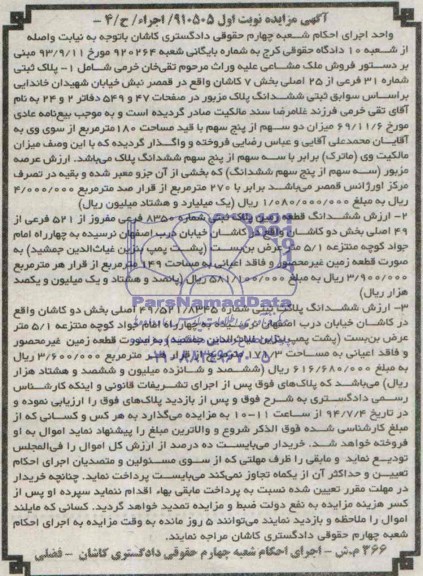 آگهی مزایده نوبت اول ۹۱۰۵۰۵/اجراء/ح/۴ -
واحد اجرای احکام شعبه چهارم حقوقی دادگستری کاشان باتوجه به نیابت واصله
از شعبه ۱۰ دادگاه حقوقی کرج به شماره بایگانی شعبه ۹۲۰۲۶۴ مورخ ۹۳/۹/۱۱ مبنی
بر دستور فروش ملک مشاعی علیه وراث مرحوم تقی‌خان خرمی شامل ۱- پلاک ثبتی
شماره ۳۱ فرعی از ۲۵ اصلی بخش ۷ کاشان واقع در قمصر نبش خیابان شهیدان خاندایی
براساس سوابق ثبتی ششدانگ پلاک مزبور در صفحات ۴۷ و ۵۴۹ دفاتر ۲ و ۲۴ به نام
آقای تقی خرمی فرزند غلامرضا سند مالکیت صادر گردیده است و به موجب بیع‌نامه عادی
مورخ ۶۹/۱۱/۶ میزان دو سهم از پنج سهم با قید مساحت ۱۸۰مترمربع از سوی وی به
آقایان محمدعلی آقایی و عباس رضایی فروخته و واگذار گردیده که با این وصف میزان
مالکیت وی (ماترک) برابر با سه سهم از پنج سهم ششدانگ پلاک می‌باشد. ارزش عرصه
مزبور (سه سهم از پنج سهم ششدانگ) که بخشی از آن جزو معبر شده و بقیه در تصرف
مرکز اورژانس قمصر می‌باشد برابر با ۲۷۰ مترمربع از قرار صد مترمربع ۴/۰۰۰/۰۰۰
ریال به مبلغ ۱/۰۸۰/۰۰۰/۰۰۰ ریال (یک میلیارد و هشتاد میلیون ریال)
۲- ارزش ششدانگ قطعه زمین پلاک ثبتی شماره ۸۳۵۰ فرعی مفروز از ۵۲۱ فرعی از
۴۹ اصلی بخش دو کاشان واقع در کاشان خیابان درب اصفهان نرسیده به چهارراه امام
جواد کوچه منتزعه ۵/۱ متر عرض بن‌بست (پشت پمپ بنزین غیاث‌الدین جمشید) به
صورت قطعه زمین غیرمحصور و فاقد اعیانی به مساحت ۱۴۹ مترمربع از قرار هر مترمربع
۳/۹۰۰/۰۰۰ ریال به مبلغ ۵۸۱/۱۰۰/۰۰۰ ریال (پانصد و هشتاد و یک میلیون و یکصد
هزار ریال)
۳- ارزش ششدانگ پلاک ثبتی شماره ۴۹/۵۲۱/۸۳۴۵ اصلی بخش دو کاشان واقع
در کاشان خیابان درب اصفهان نرسیده به چهارراه امام جواد کوچه منتزعه ۵/۱ متر
عرض بن‌بست (پشت پمپ بنزین غیاث‌الدین جمشید) به صورت قطعه زمین غیرمحصور
و فاقد اعیانی به مساحت ۱۷۱/۳ مترمربع از قرار هر مترمربع ۳/۶۰۰/۰۰۰ ریال
به مبلغ ۶۱۶/۶۸۰/۰۰۰ ریال (ششصد و شانزده میلیون و ششصد و هشتاد هزار
ریال) می‌باشد که پلاک‌های فوق پس از اجرای تشریفات قانونی و اینکه کارشناس
رسمی دادگستری به شرح فوق و پس از بازدید پلاک‌های فوق را ارزیابی نموده و
در تاریخ ۹۴/۷/۴ از ساعت ۱۱-۱۰ به مزایده می‌گذارد به هر کس و کسانی که از
مبلغ کارشناسی شده فوق الذکر شروع و والاترین مبلغ را پیشنهاد نماید اموال به او
فروخته خواهد شد. خریدار می‌بایست ده درصد از ارزش کل اموال را فی‌المجلس
تودیع نماید و مابقی را ظرف مهلتی که از سوی مسئولین و متصدیان اجرای احکام
تعیین و حداکثر آن از یکماه تجاوز نمی‌کند می‌بایست پرداخت نماید. چنانچه خریدار
در مهلت مقرر تعیین شده نسبت به پرداخت مابقی بهاء اقدام ننماید سپرده او پس از
کسر هزینه مزایده به نفع دولت ضبط و مزایده تمدید خواهد گردید. کسانی که مایلند
اموال را ملاحظه و بازدید نمایند می‌توانند ۵ روز مانده به وقت مزایده به اجرای احکام
شعبه چهارم حقوقی دادگستری کاشان مراجعه نمایند.
۳۶۶ م.ش - اجرای احکام شعبه چهارم حقوقی دادگستری کاشان - فضلی
ParsNamadData